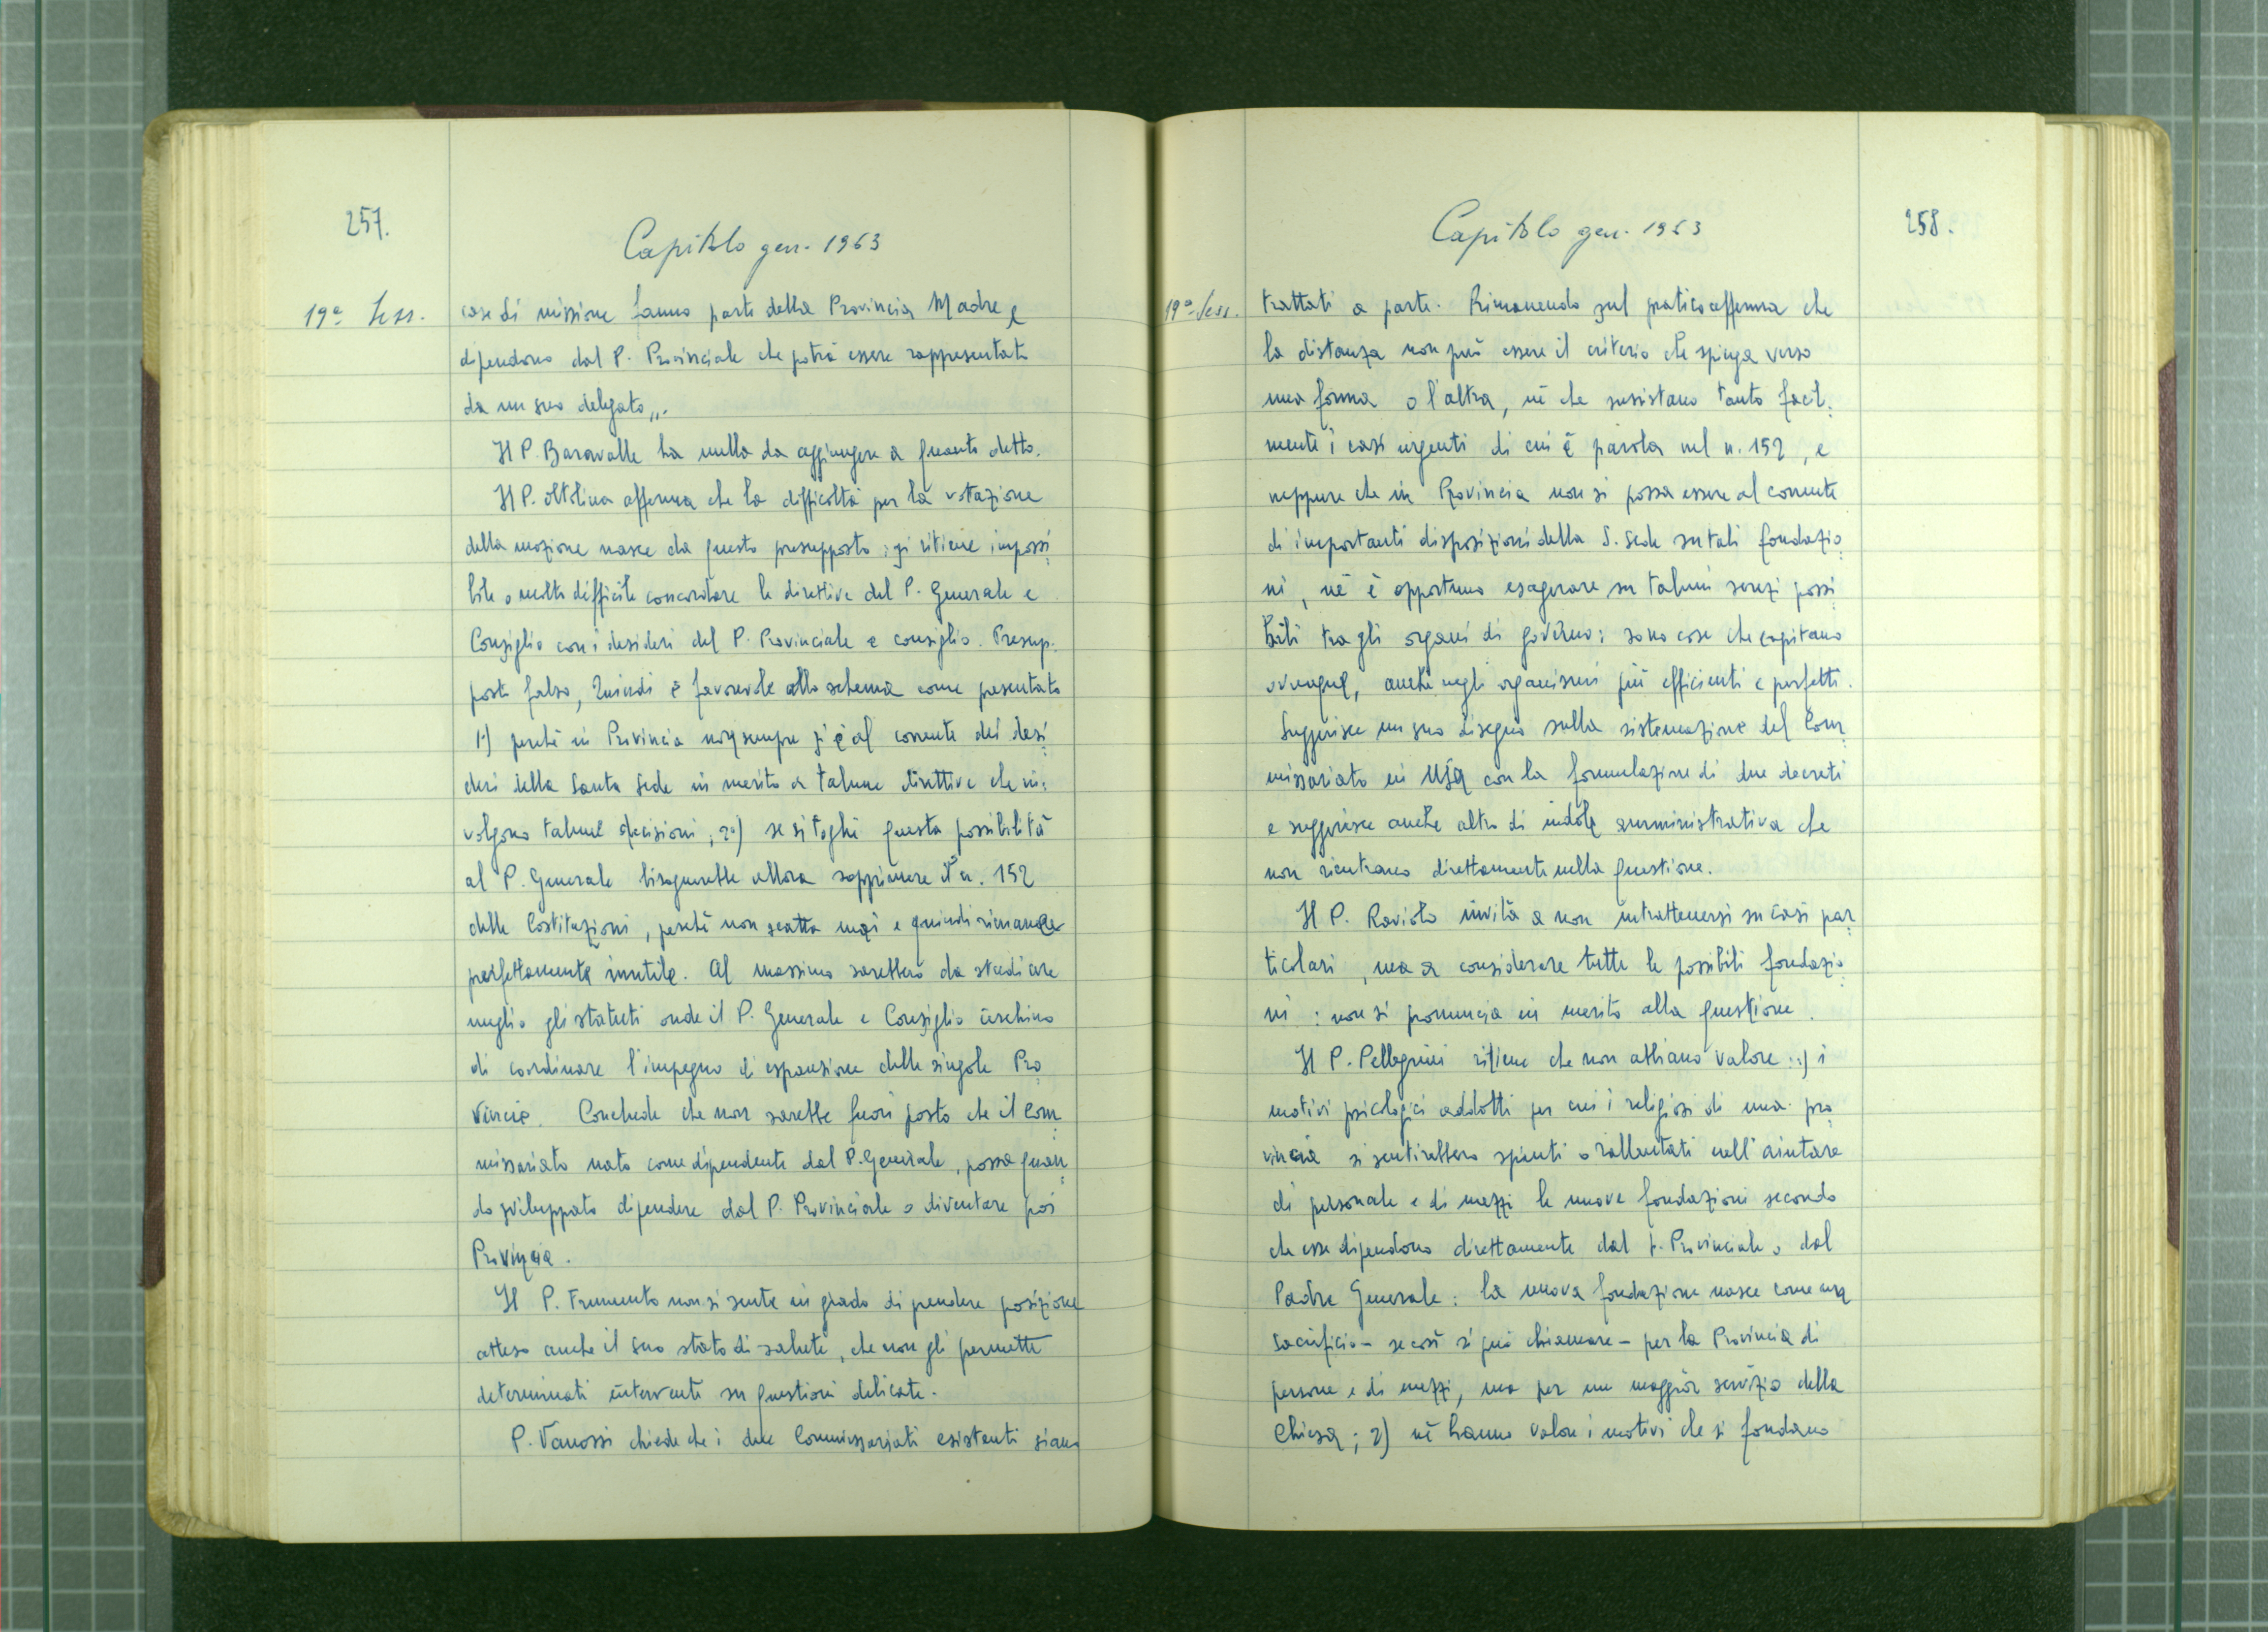 257.
Capitolo gen. 1963
19ª Sess.
case di missione fanno parte della Provincia Madre e
dipendono dal P. Provinciale che potrà essere rappresentato
da un suo delegato„.
Il P. Baravalle ha nulla da aggiungere a quanto detto.
Il P. Oltolina afferma che la difficoltà per la votazione
della mozione nasce da questo presupposto: si ritiene impossi
bile o molto difficile concordare le direttive del P. Generale e
Consiglio con i desideri del P. Provinciale e consiglio. Presup-
posto falso, Quindi è favorevole allo schema come presentato
1º) perché in Provincia non sempre si è al corrente dei desi
deri della Santa Sede in merito a talune direttive che in:
volgono talune decisioni; 2º) se si toglie questa possibilità
al P. Generale bisognerebbe allora sopprimere il n. 152
delle Costituzioni, perché non scatta mai e quindi rimane
perfettamente inutile. Al massimo sarebbero da studiare
meglio gli statuti onde il P. Generale e Consiglio cerchino
di coordinare l'impegno di espansione delle singole Pro
vincie. Conclude che non sarebbe fuori posto che il Com
missariato nato come dipendente dal P. Generale, possa quan
do sviluppato dipendere dal P. Provinciale o diventare poi
Provincia.
Il P. Frumento non si sente in grado di prendere posizione
atteso anche il suo stato di salute, che non gli permette
determinati interventi su questioni delicate.
P. Vanossi chiede che i due Commissariati esistenti siano
Capitolo gen. 1963
258.
19ª Sess.
trattati a parte. Rimanendo sul pratico afferma che
la distanza non può essere il criterio che spinga verso
una forma o l'altra, nè che sussistano tanto facil:
mente i casi urgenti di cui è parola nel n. 152, e
neppure che in Provincia non si possa essere al corrente
di importanti disposizioni della S. Sede su tali fondazio
ni, nè è opportuno esagerare su taluni screzi possi
bili tra gli organi di governo: sono cose che capitano
ovunque, anche negli organismi più efficienti e perfetti.
Suggerisce un suo disegno sulla sistemazione del Com
missariato in USA con la formulazione di due decreti
e suggerisce anche altro di indole amministrativa che
non rientrano direttamente nella questione.
Il P. Raviolo invita a non intrattenersi su casi par
ticolari, ma a considerare tutte le possibili fondazio
ni: non si pronuncia in merito alla questione.
Il P. Pellegrini ritiene che non abbiano valore: 1) i
motivi psicologici addotti per cui i religiosi di una pro
vincia si sentirebbero spinti o rallentati nell'aiutare
di personale e di mezzi le nuove fondazioni secondo
che esse dipendono direttamente dal P. Provinciale o dal
Padre Generale: la nuova fondazione nasce come un
sacrificio – se così si può chiamare – per la Provincia di
persone e di mezzi, ma per un maggior servizio della
Chiesa; 2) nè hanno valore i motivi che si fondano